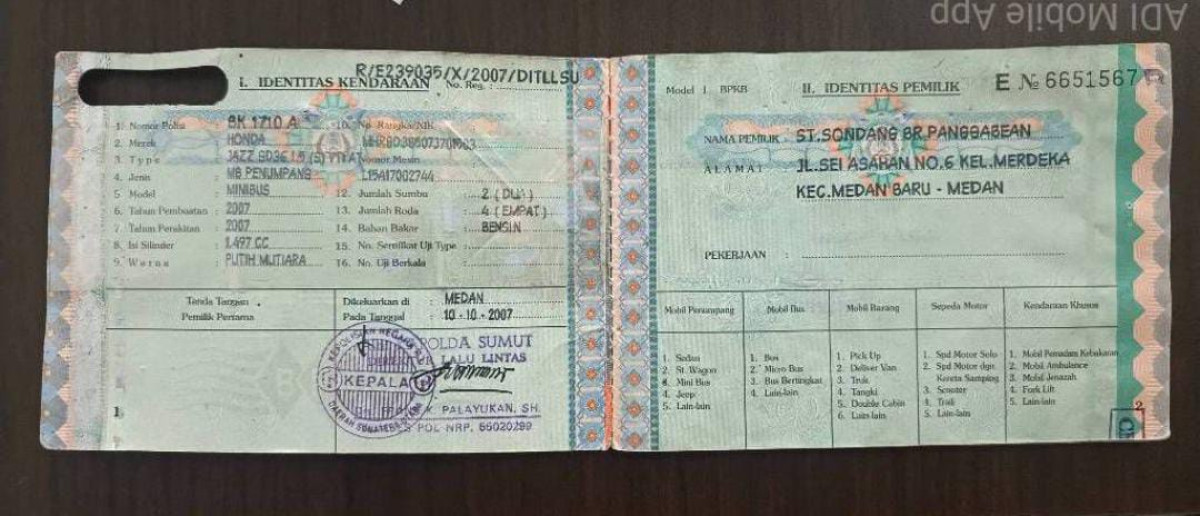 ADI Mobile App
R/E239035/X/2007/DITLLSU
I. IDENTITAS KENDARAAN No. Reg. :
1. Nomor Polisi : BK 1710 A
2. Merek : HONDA
3. Type : JAZZ GD3
4. Jenis : MB PENUMPANG
5. Model : MINIBUS
6. Tahun Pembuatan : 2007
7. Tahun Perakitan : 2007
8. Isi Silinder : 1.497 CC
9. Warna : PUTIH MUTIARA
10. No. Rangka/NIK
Nomor Mesin L15A17002744
12. Jumlah Sumbu : 2 ( DUA )
13. Jumlah Roda : 4 ( EMPAT )
14. Bahan Bakar : BENSIN
15. No. Sertifikat Uji Type :
16. No. Uji Berkala :
Tanda Tangan
Pemilik Pertama
Dikeluarkan di : MEDAN
Pada Tanggal : 10 - 10 - 2007
POLDA SUMUT
LALU LINTAS
KEPALA
K. PALAYUKAN, SH.
POL NRP. 66020299
1
Model I BPKB II. IDENTITAS PEMILIK E № 6651567
NAMA PEMILIK : ST.SONDANG BR.PANGGABEAN
ALAMAT : JL.SEI ASAHAN NO.6 KEL.MERDEKA
KEC.MEDAN BARU - MEDAN
PEKERJAAN :
Mobil Penumpang Mobil Bus Mobil Barang Sepeda Motor Kendaraan Khusus
1. Sedan
2. St. Wagon
3. Mini Bus
4. Jeep
5. Lain-lain
1. Bus
2. Micro Bus
3. Bus Bertingkat
4. Lain-lain
1. Pick Up
2. Deliver Van
3. Truk
4. Tangki
5. Double Cabin
6. Lain-lain
1. Spd Motor Solo
2. Spd Motor dgn
Kereta Samping
3. Scooter
4. Trail
5. Lain-lain
1. Mobil Pemadam Kebakaran
2. Mobil Ambulance
3. Mobil Jenazah
4. Fork Lift
5. Lain-lain
2